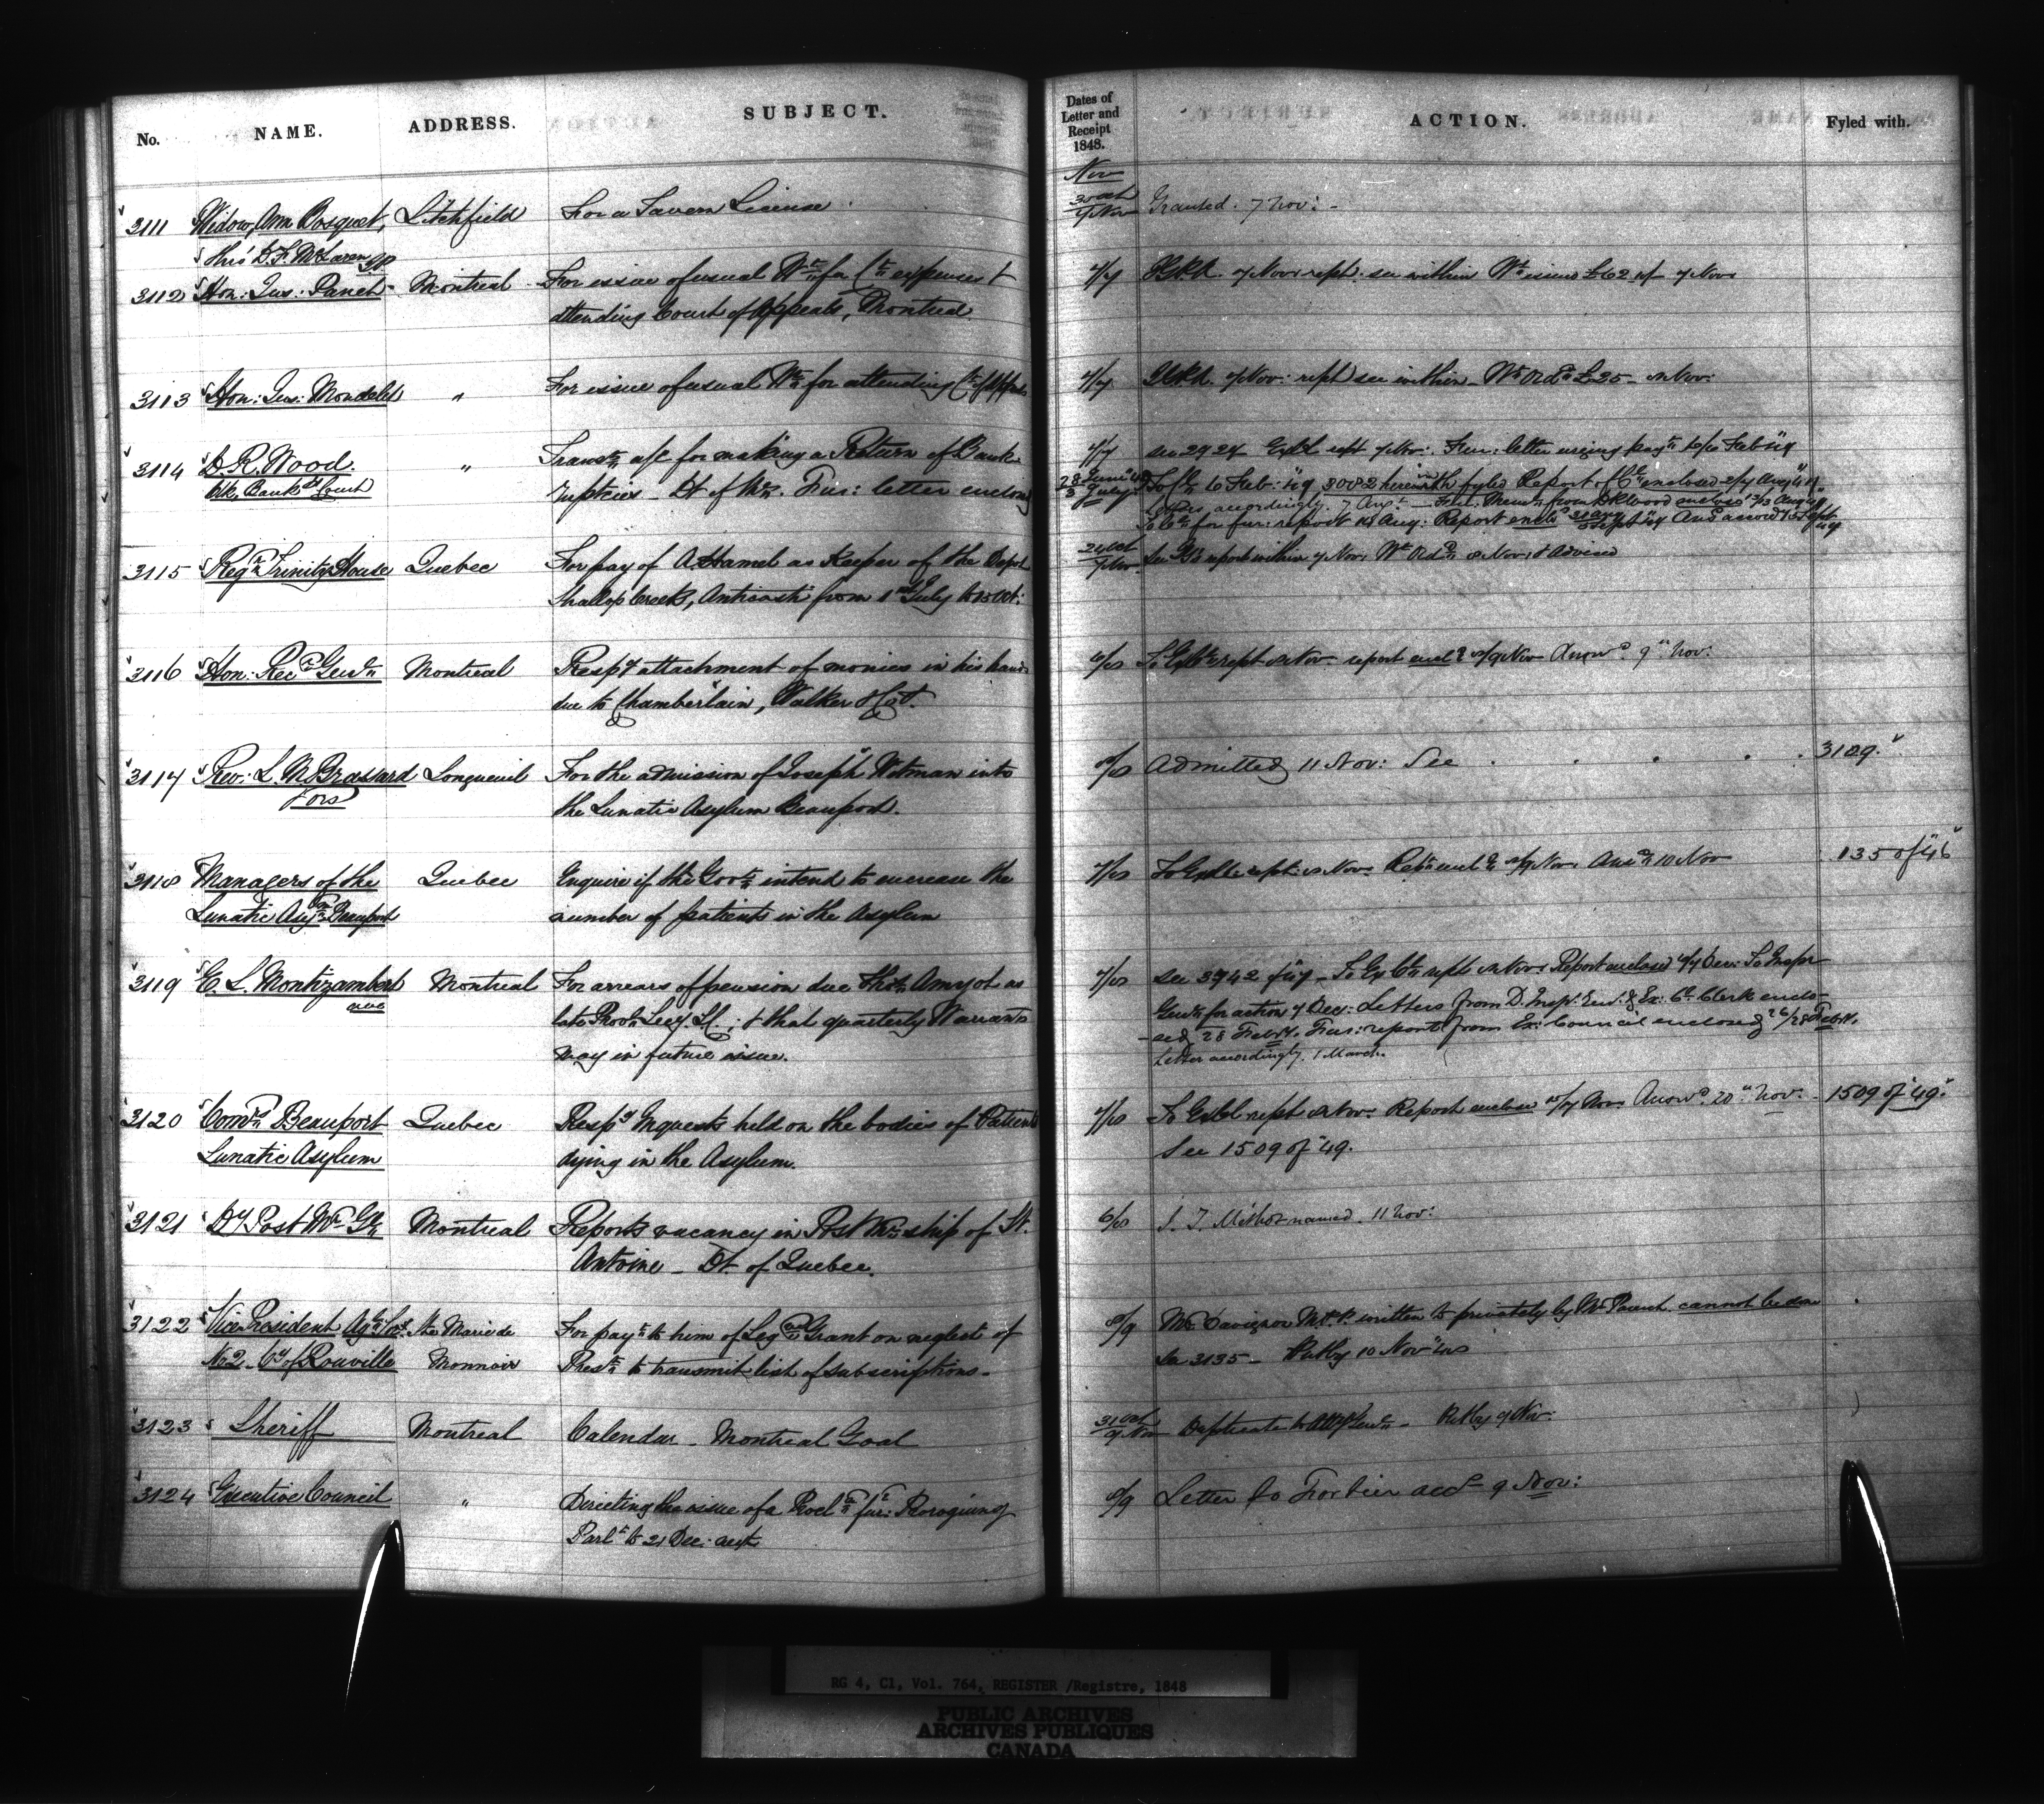 No. NAME. ADDRESS. SUBJECT. Dates of Letter and Receipt 1848. ACTION. Fyled with.
Nov
3111 Widow Ann Bosquet, Litchfield For a Tavern License 30 Oct / 7 Nov Granted. 7 Nov: -
thro' D. F. McLaren JP
3112 Hon: Jus: Panet Montreal For issue of usual Wt. for Ct. expenses 4/7 7 Nov rept. see within Wt. issued £62 7 Nov
attending Court of Appeals, Montreal.
3113 Hon: Jus: Mondelet " For issue of usual Wt. for attending Ct. of Appeals 4/7 7 Nov: rept see within - Wt. Ord. £25 - 8 Nov:
3114 D. R. Wood. " Transts. a/c for making a Return of Bank- 4/7 see 2924 rept 7 Nov: Fur: letter urging payt. 6/6 Feb "49
Clk, Bankt. Court ruptcies - Dt. of M. Fur: letter enclosed 28 June "49 / 3 July 6 Feb: "49 3002 herewith fyled Report of enclosed 2/4 Aug "49
Letter accordingly. 7 Augt. - Fur: Memo. from D R Wood enclosed 12/13 Aug "49
for fur: report 14 Aug: Report encl.
3115 Regr. Trinity House Quebec For pay of A Hamel as Keeper of the Depot 24 Oct / 7 Nov See report within 7 Nov: Wt. Ord. 8 Nov: & Advised
Shallop Creek, Anticosti from 1st July to 15 Oct:
3116 Hon: Recr. Genl. Montreal Respg attachment of monies in his hands 6/8 rept 8 Nov report encl. 8/9 Nov Answd. 9th Nov.
due to Chamberlain, Walker & Co.
3117 Rev: L. M. Brassard Longueuil For the admission of Joseph Witman into 8/8 Admitted 11 Nov: See . . . . 3129.
the Lunatic Asylum Beauport.
3118 Managers of the Quebec Enquire if the Govt. intend to encrease the 7/8 rept: 8 Nov Rept. encl. 8/9 Nov. Ansd. 10 Nov 135 of "46
Lunatic Asym. Beauport number of patients in the Asylum
3119 E. L. Montizambert Montreal For arrears of pension due Thos. Amyot as 7/8 see 3742 - To Ex Cl. rept 8 Nov: Report enclosed 4/7 Dec: To Inspr
late Provl. Secy. L.C.; & that quarterly Warrants Genl. for action 7 Dec: Letters from D. Inspr. Genl. & Ex: Cl. Clerk enclo-
may in future issue. -sed 28 Feby. Fur: report from Ex: Council enclosed 26/28 Feby.
Letter accordingly. 1 March.
3120 Comrs. Beauport Quebec Respg Inquests held on the bodies of Patients 7/8 rept 8 Nov: Report enclosed Nov Answd. 20th Nov: - 1509 of "49.
Lunatic Asylum dying in the Asylum. See 1509 of "49.
3121 Dy Post Mr. Gl. Montreal Reports vacancy in Post Mr. ship of St. 6/8 Méthot named. 11 Nov:
Antoine - Dt. of Quebec.
3122 Vice President Agl. Soc. Ste Marie de For payt. to him of Leg. Grant on neglect of 8/9 Mr. Davignon M.P.P. written to privately by Mr. Parent. cannot be done
No 2 - Cy of Rouville Monnoir Prest. to transmit list of subscriptions - See 3135 - Put by 10 Nov "48
3123 Sheriff Montreal Calendar - Montreal Goal 31 Oct / 7 Nov Duplicate to Atty Genl. - Put by 9 Nov:
3124 Executive Council " Directing the issue of a Procln. fur: Proroguing 8/9 Letter to Fortier accd. 9 Nov:
Parlt. to 21 Dec. next
RG 4, C1, Vol. 764, REGISTER /Registre, 1848
PUBLIC ARCHIVES
ARCHIVES PUBLIQUES
CANADA